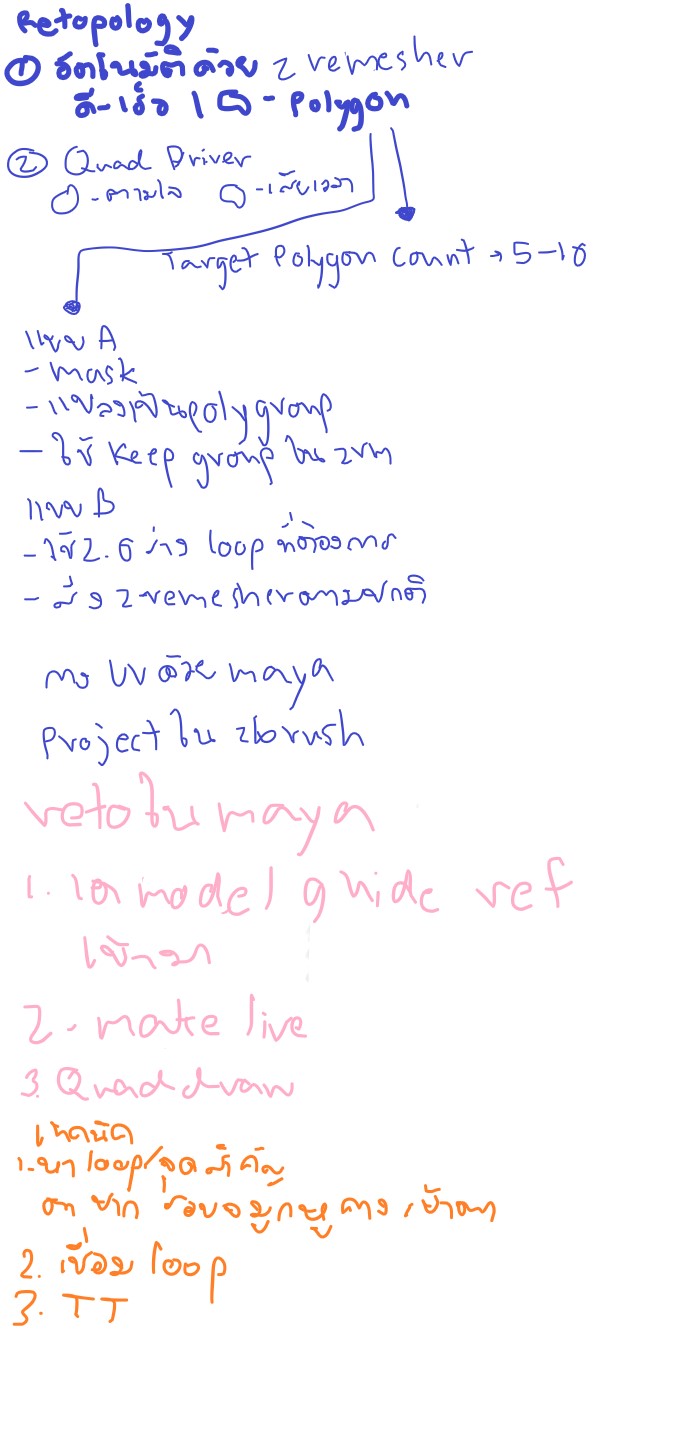 Retopology
① อัตโนมัติด้วย zremesher
ดี-เร็ว | - polygon
② Quad Driver
-ตามใจ -เสียเวลา
Target Polygon Count → 5-10
แบบ A
- mask
- แปลงเป็น polygroup
- ใช้ keep group ใน zrm
แบบ B
- ใช้ 2.6 ร่าง loop ที่ต้องการ
- สั่ง z-remesher ตามปกติ
กาง UV ด้วย maya
Project ใน zbrush
reto ใน maya
1. เอา model guide ref
เข้ามา
2. make live
3. Quad draw
เทคนิค
1. หา loop/จุดสำคัญ
ตา ปาก รอบจมูก หู คาง, เบ้าตา
2. เชื่อม loop
3. TT